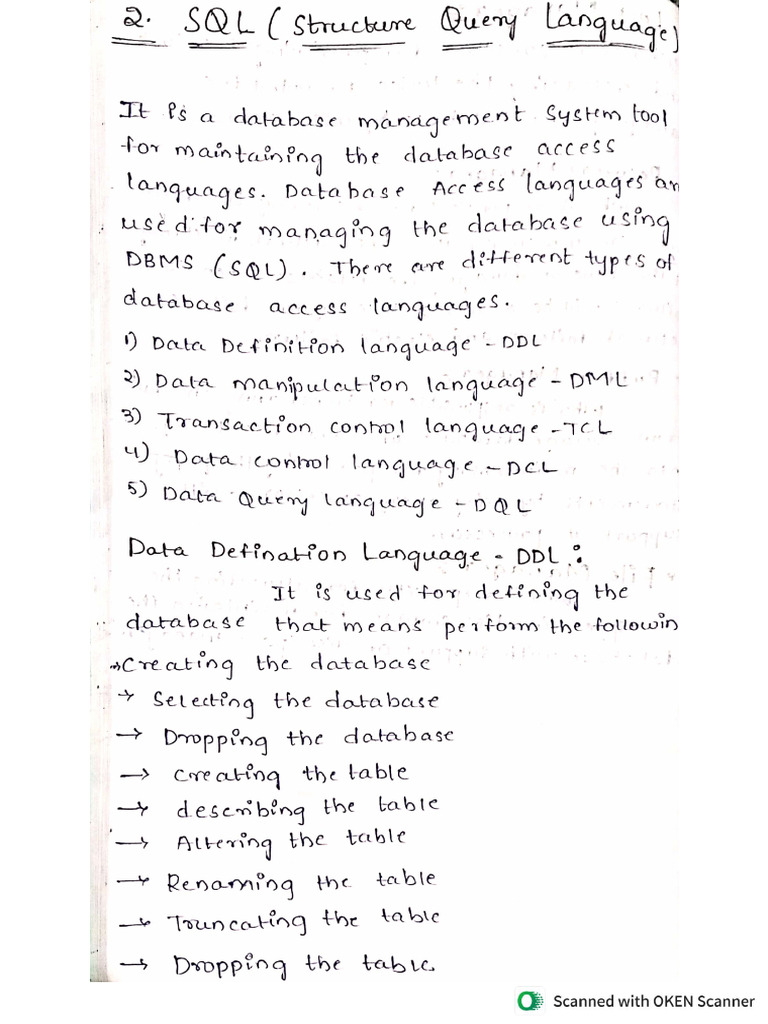 2. SQL ( Structure Query Language)
It is a database management system tool
for maintaining the database access
languages. Database Access languages ar
used for managing the database using
DBMS (SQL). There are different types of
database access languages.
1) Data Definition language - DDL
2) Data manipulation language - DML
3) Transaction control language - TCL
4) Data control language - DCL
5) Data Query language - DQL
Data Defination Language - DDL :
It is used for defining the
database that means perform the followin
→ Creating the database
→ Selecting the database
→ Dropping the database
→ Creating the table
→ describing the table
→ Altering the table
→ Renaming the table
→ Truncating the table
→ Dropping the table.
Scanned with OKEN Scanner